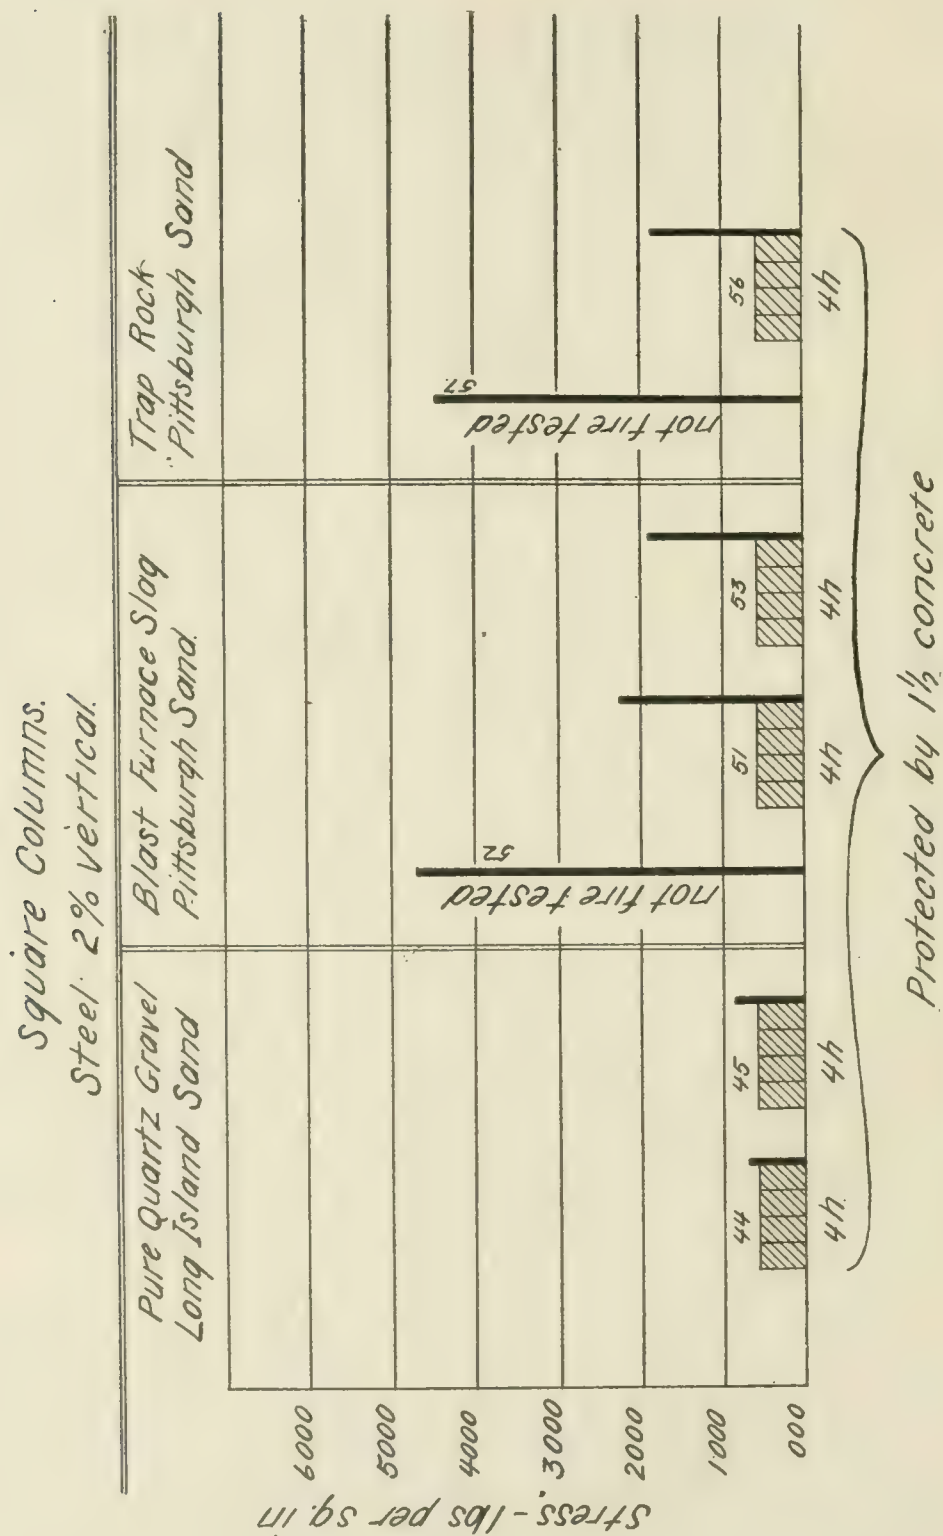 Square Columns.
Steel: 2% vertical.
Pure Quartz Gravel
Long Island Sand
Blast Furnace Slag
Pittsburgh Sand.
Trap Rock
Pittsburgh Sand
Stress,-lbs per sq. in
6000
5000
4000
3000
2000
1000
000
44
45
not fire tested
52
51
53
not fire tested
57
56
4h.
4h
4h
4h
4h
Protected by 1½ concrete